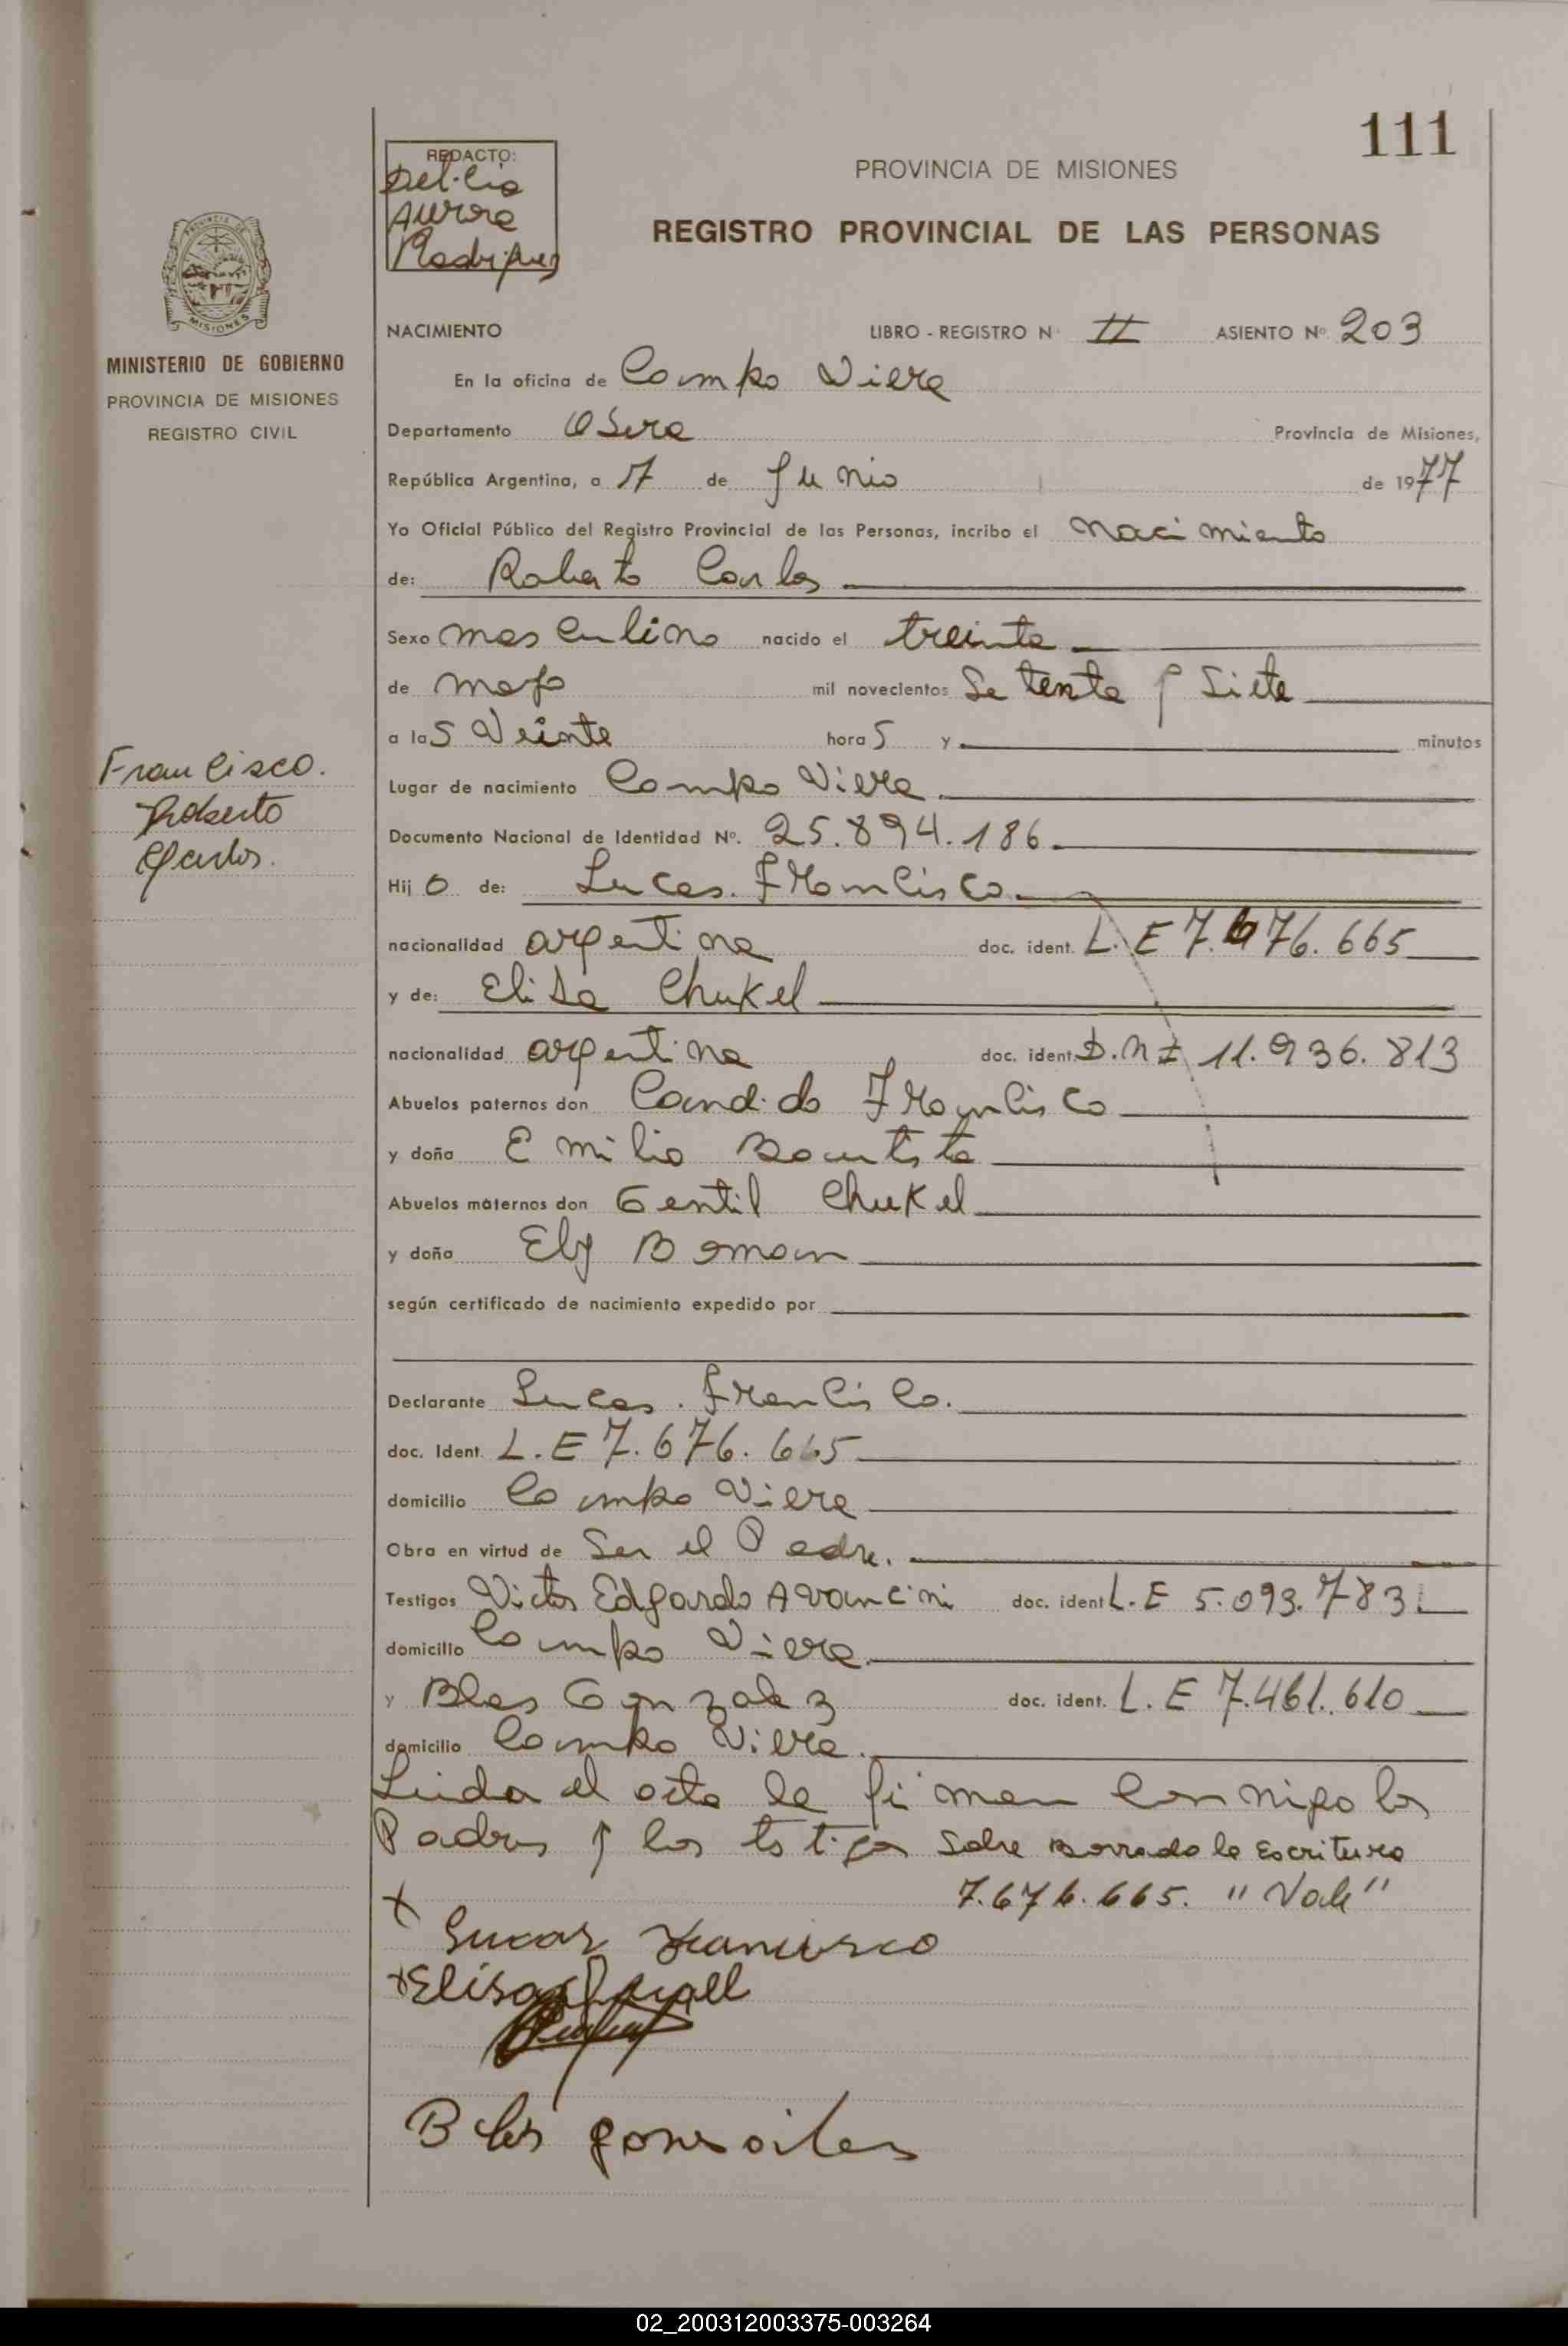 111
REDACTO:
Delcia
Aurora
Rodriguez
PROVINCIA DE MISIONES
REGISTRO PROVINCIAL DE LAS PERSONAS
MISIONES
MINISTERIO DE GOBIERNO
PROVINCIA DE MISIONES
REGISTRO CIVIL
NACIMIENTO LIBRO - REGISTRO Nº II ASIENTO Nº 203
En la oficina de Campo Viera
Departamento Oberá Provincia de Misiones,
República Argentina, a 17 de Junio de 1977
Yo Oficial Público del Registro Provincial de las Personas, incribo el nacimiento
de: Roberto Carlos
Sexo masculino nacido el treinta
de mayo mil novecientos Setenta y Siete
a las Veinte horas y minutos
Francisco.
Roberto
Carlos.
Lugar de nacimiento Campo Viera
Documento Nacional de Identidad Nº. 25.894.186
Hijo de: Lucas. Francisco
nacionalidad argentina doc. ident. L. E 7.676.665
y de: Elisa Chukel
nacionalidad argentina doc. ident. D.N.I 11.936.813
Abuelos paternos don Candido Francisco
y doña Emilia Bautista
Abuelos maternos don Gentil Chukel
y doña Ely Beman
según certificado de nacimiento expedido por
Declarante Lucas. Francisco.
doc. Ident. L. E 7.676.665
domicilio Campo Viera
Obra en virtud de Ser el Padre.
Testigos Victor Edgardo Avancini doc. ident L. E 5.093.783
domicilio Campo Viera
y Blas Gonzalez doc. ident. L. E 7.461.610
domicilio Campo Viera.
Leida el acta la firman conmigo los
Padres y los testigos Sobre Borrado la Escritura
7.676.665. "Vale"
x Lucas Francisco
x Elisa
Blas gonsales
02_200312003375-003264